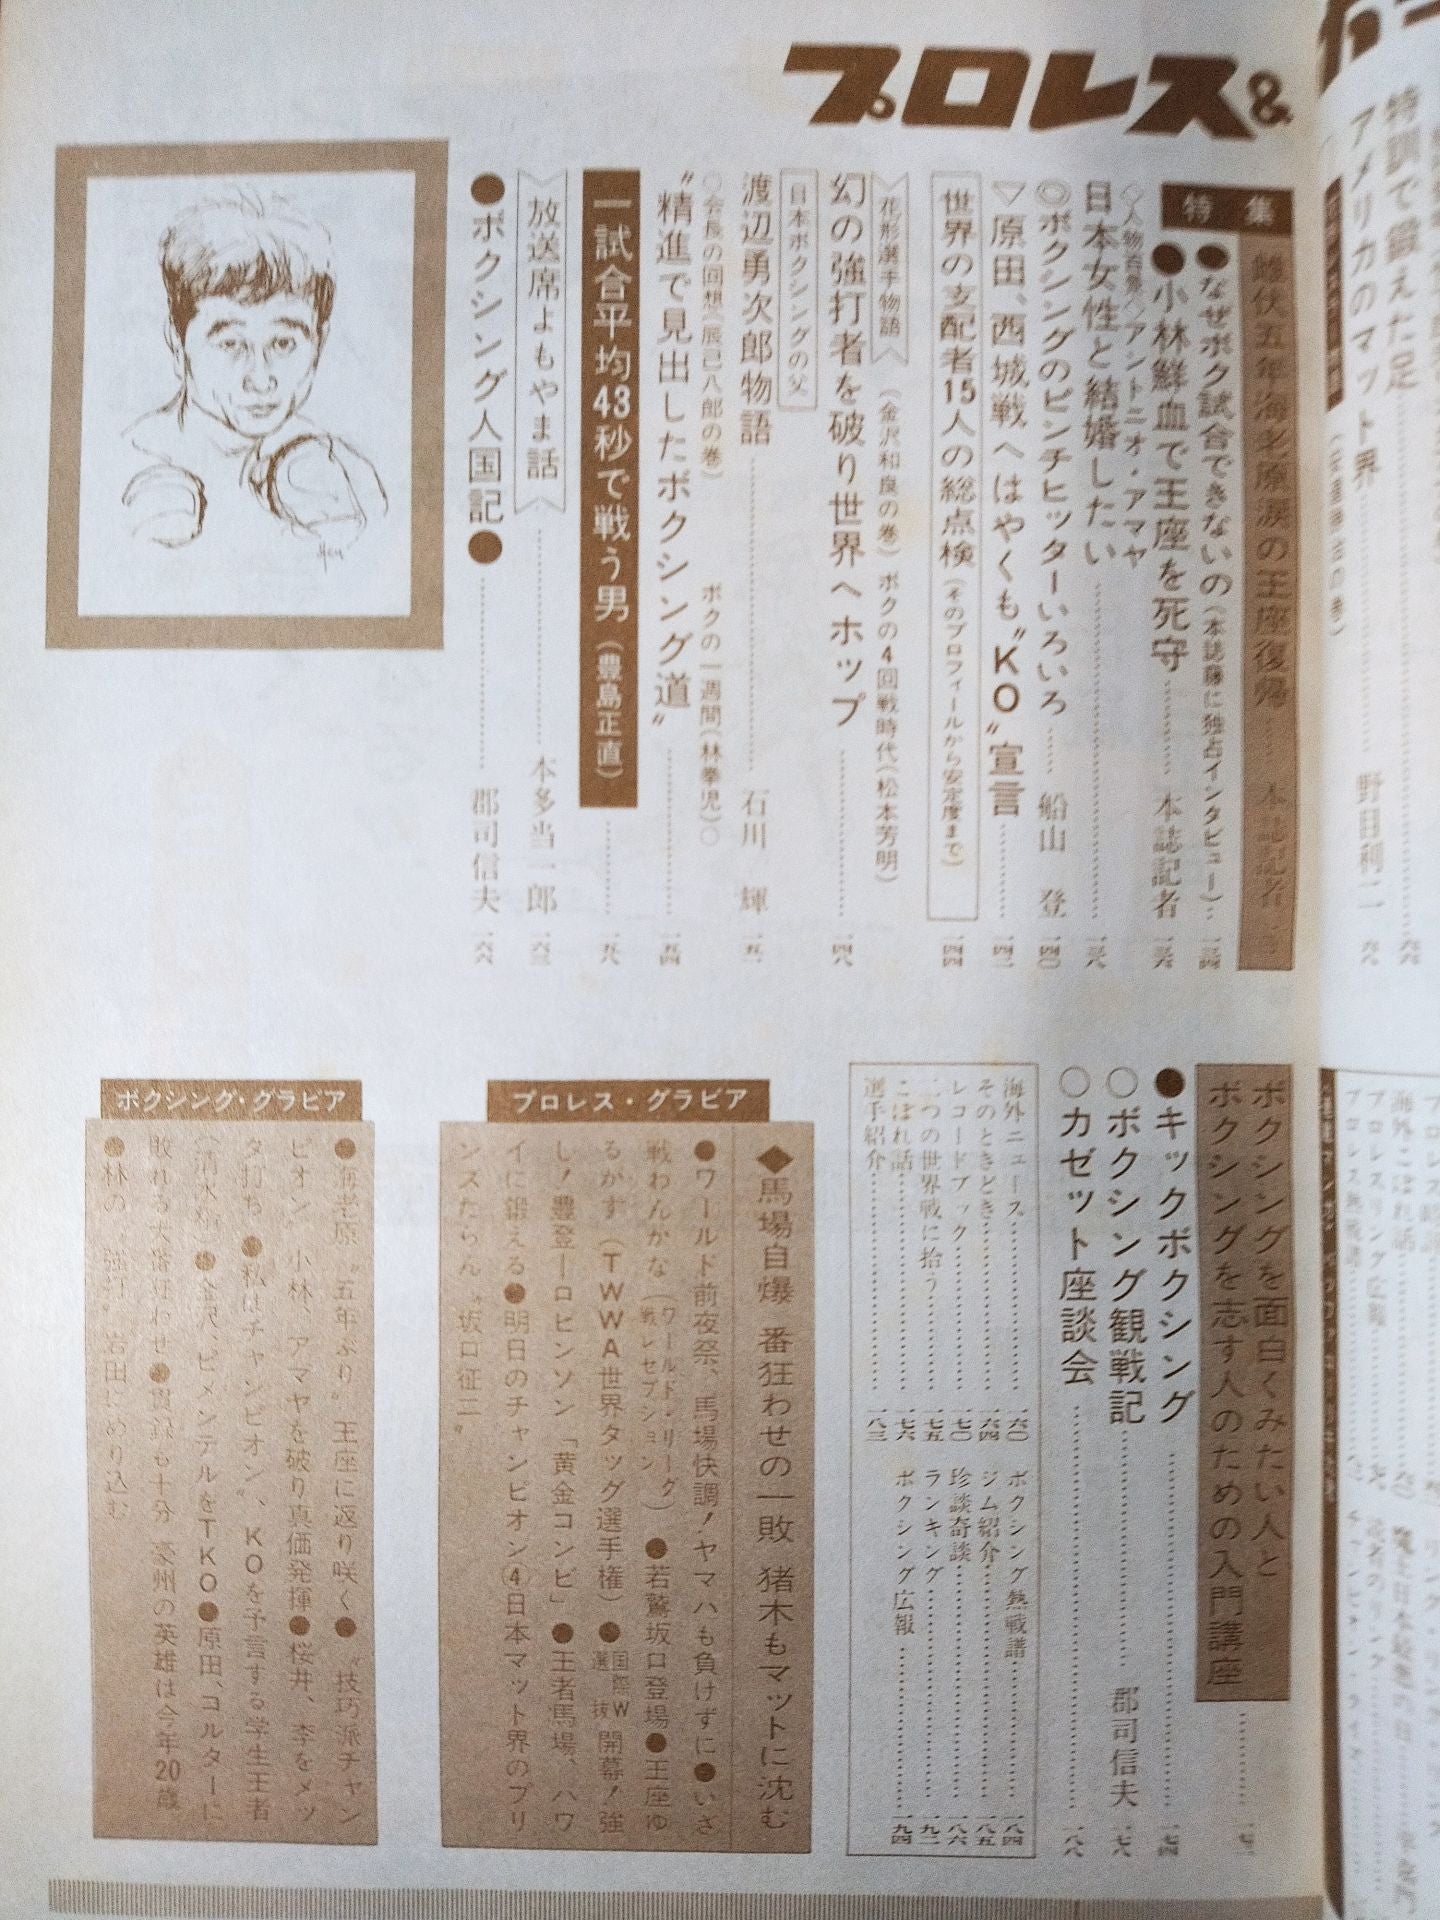 プロレス&
特集
雌伏五年海老原涙の王座復帰……本誌記者
●なぜボク試合できないの(本誌藤に独占インタビュー)…一三四
●小林鮮血で王座を死守……本誌記者 一三六
◇人物百景◇アントニオ・アマヤ
日本女性と結婚したい……一三八
◎ボクシングのピンチヒッターいろいろ……船山 登 一四〇
▽原田、西城戦へはやくも〝KO〟宣言……一四二
世界の支配者15人の総点検(そのプロフィールから安定度まで) 一四四
花形選手物語 (金沢和良の巻) ボクの4回戦時代(松本芳明)
幻の強打者を破り世界へホップ……一四八
日本ボクシングの父
渡辺勇次郎物語……石川 輝 一五一
○会長の回想(辰己八郎の巻) ボクの一週間(林拳児)○
〝精進で見出したボクシング道〟……一五四
一試合平均43秒で戦う男(豊島正直)……一五八
放送席よもやま話……本多当一郎 一六三
●ボクシング人国記●……郡司信夫 一六六
ボクシングを面白くみたい人と
ボクシングを志す人のための入門講座……
●キックボクシング……一七四
○ボクシング観戦記……郡司信夫 一七八
○カゼット座談会……一八八
海外ニュース……一六〇
そのときどき……一六四
レコードブック……一七〇
二つの世界戦に拾う……一七五
こぼれ話……一七六
選手紹介……一八三
ボクシング熱戦譜……一八四
ジム紹介……一八五
珍談奇談……一八六
ランキング……一九二
ボクシング広報……一九四
プロレス・グラビア
◆馬場自爆 番狂わせの一敗 猪木もマットに沈む
●ワールド前夜祭、馬場快調!ヤマハも負けずに●いざ
戦わんかな(ワールド・リーグ戦レセプション)●若鷲坂口登場●王座ゆ
るかす(TWWA世界タッグ選手権)●国際W選抜開幕!強
し!豊登―ロビンソン「黄金コンビ」●王者馬場、ハワ
イに鍛える●明日のチャンピオン④日本マット界のプリ
ンスたらん〝坂口征二〟
ボクシング・グラビア
●海老原〝五年ぶり〟王座に返り咲く●〝技巧派チャン
ピオン〟小林、アマヤを破り真価発揮●桜井、李をメッ
タ打ち●〝私はチャンピオン〟、KOを予言する学生王者
(清水精)●金沢、ピメンテルをTKO●原田、コルターに
敗れる大番狂わせ●貫録も十分 豪州の英雄は今年20歳
●林の〝強打〟岩田にめり込む
特訓で鍛えた足
アメリカのマット界……野田利二 六八